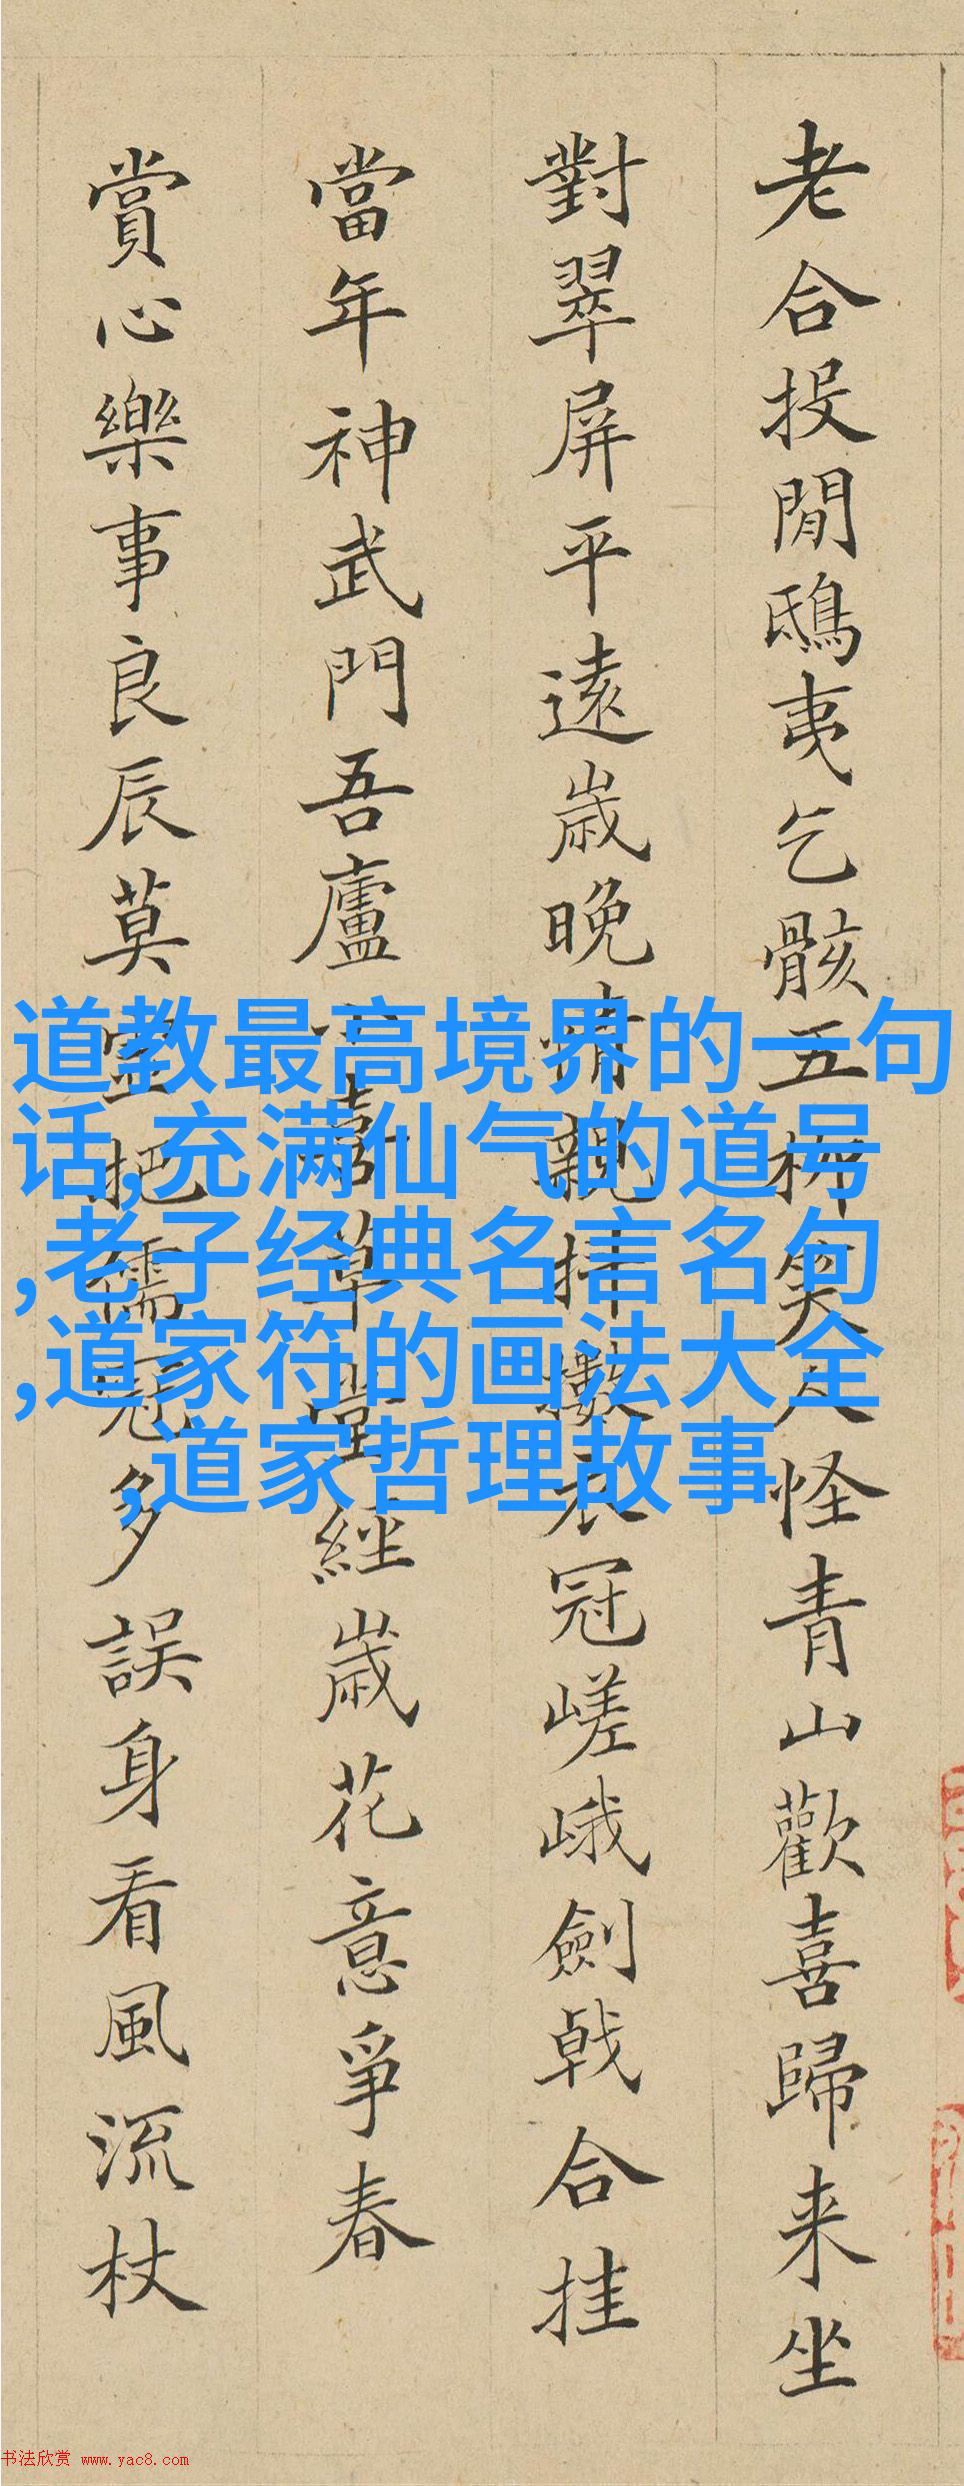 老合投閒鴟夷乞骸五柳笑人怪青山歡喜歸来坐
對翠屏平遠歲晚情親抖擻衣冠嵯峨劍戟合挂
當年神武門吾廬喜草堂經歲花意爭春
賞心樂事良辰莫把儒冠多誤身看風流杖
道教最高境界的一句
话,充满仙气的道号
,老子经典名言名句
,道家符的画法大全
,道家哲理故事
书法欣赏 www.yac8.com